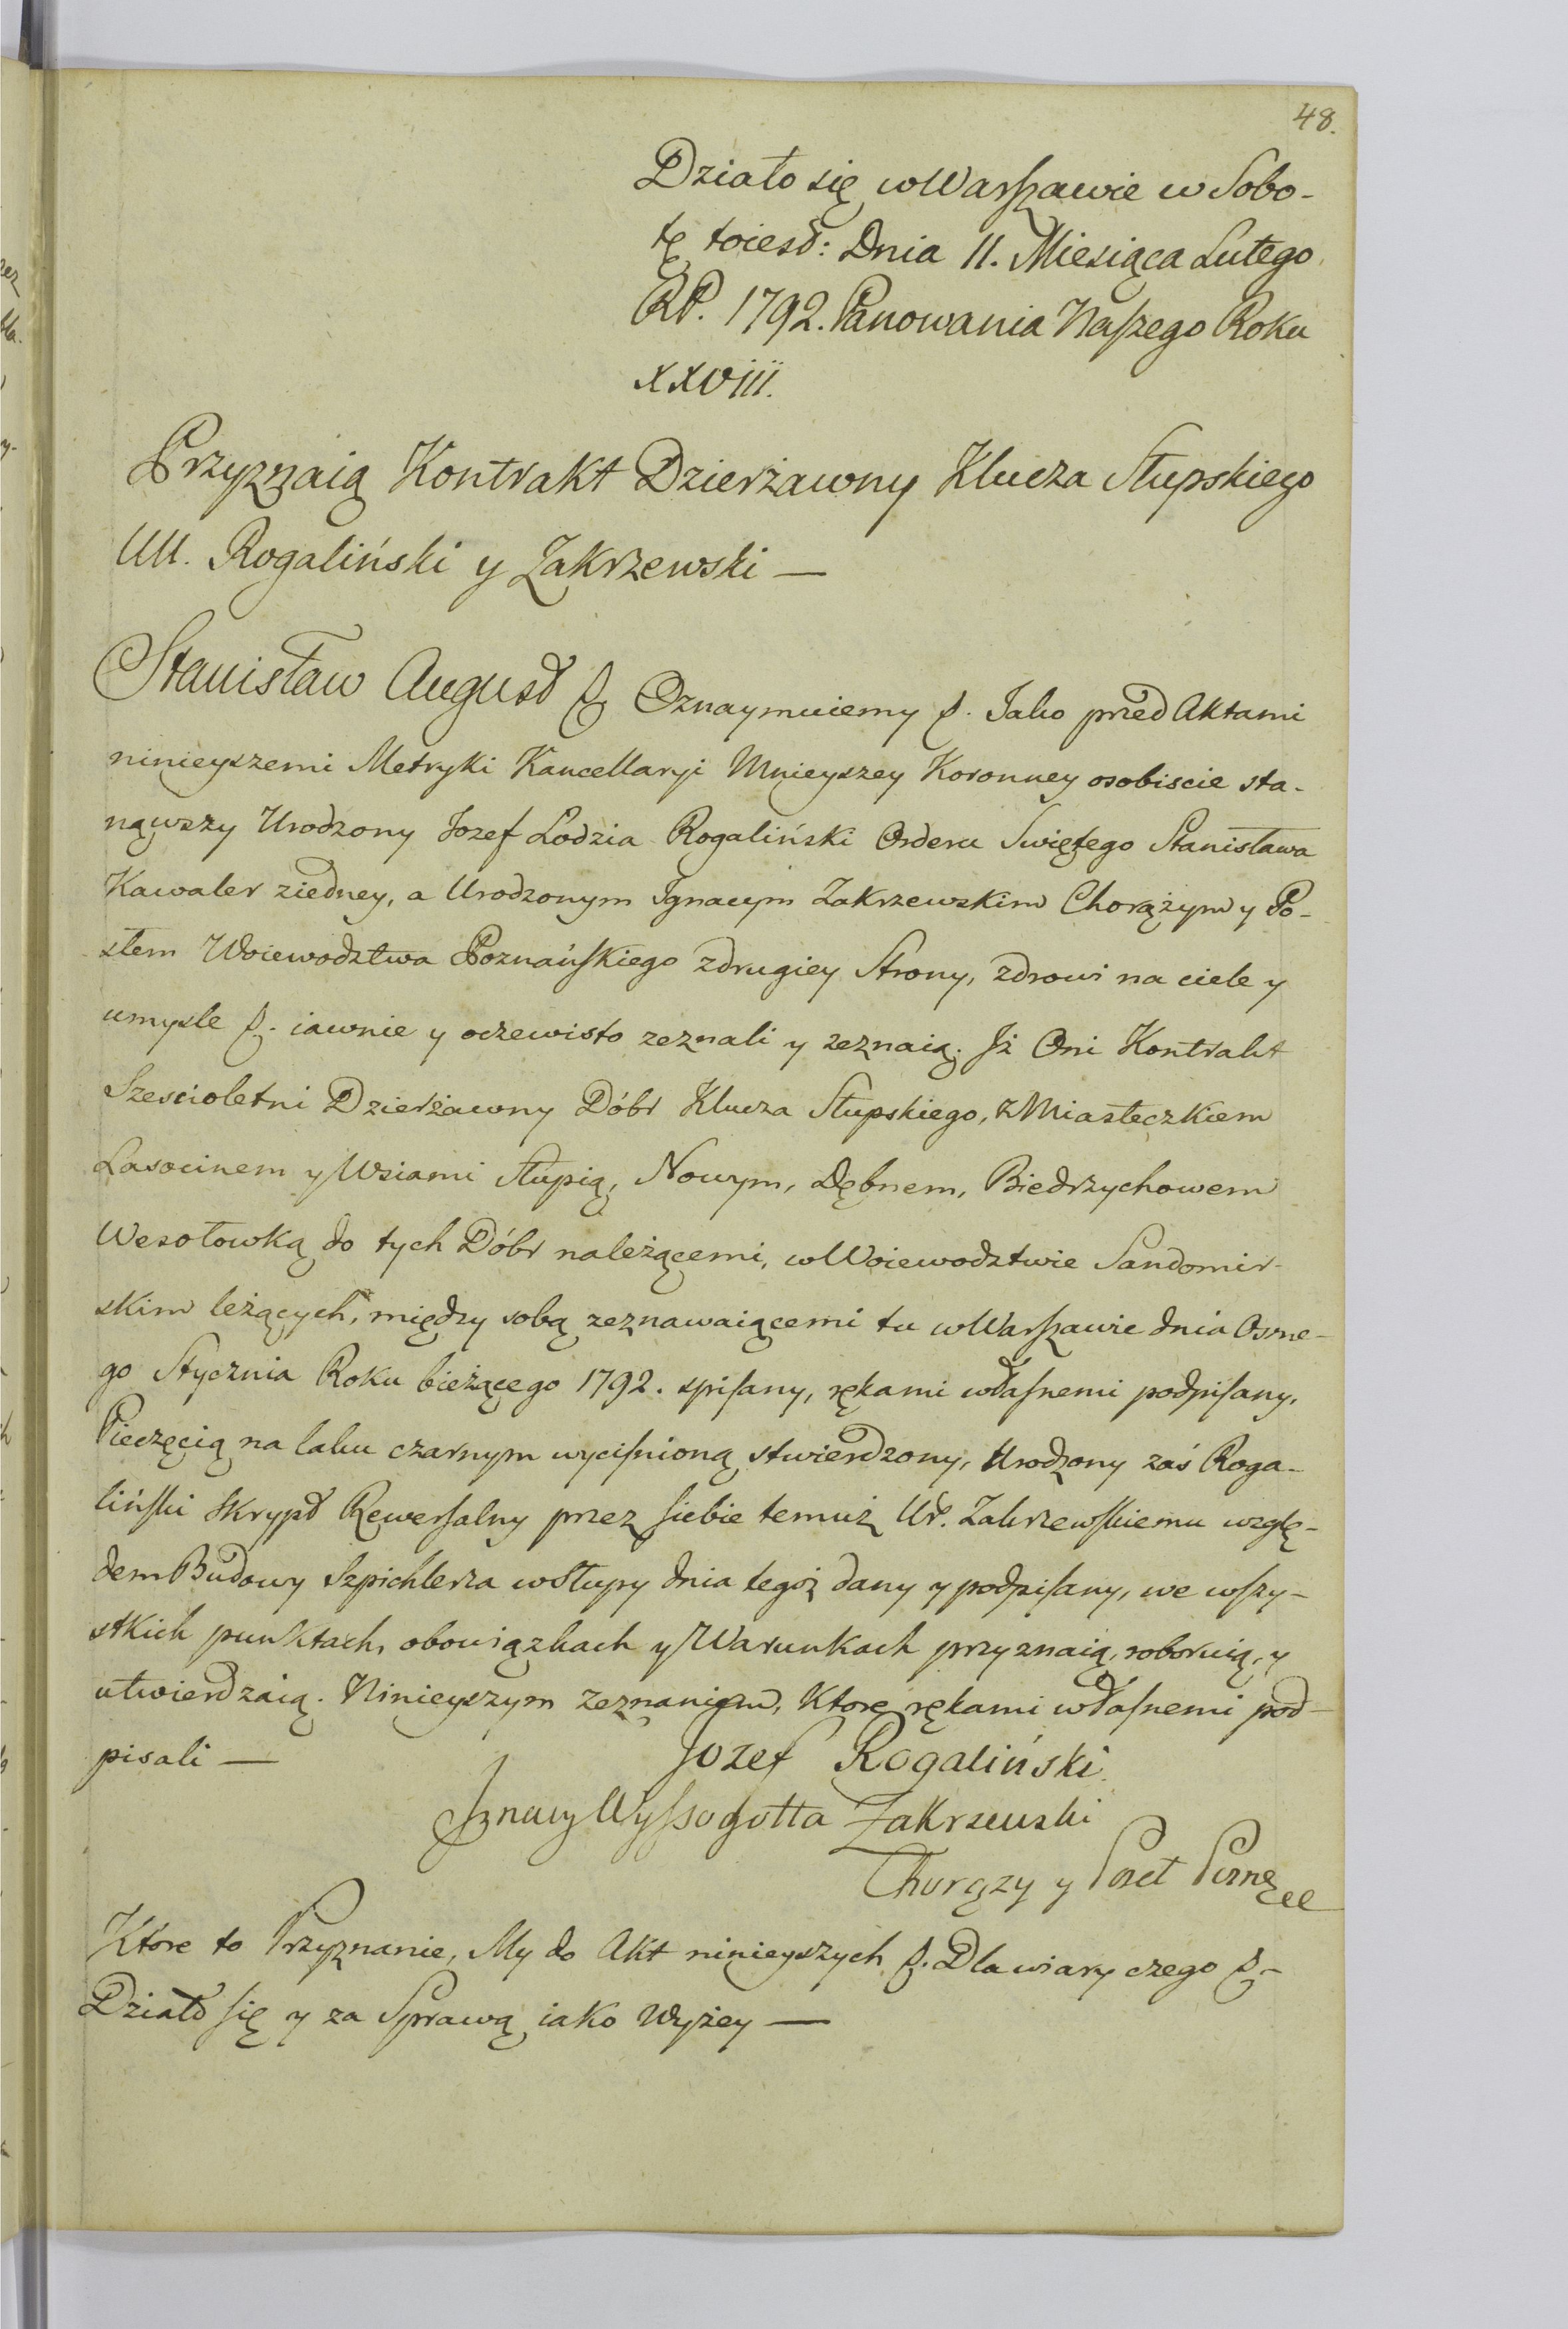 48.
Działo się w Warszawie w Sobo-
tę toiest: Dnia 11. Miesiąca Lutego
RP. 1792. Panowania Naszego Roku
XXVIII.
Przyznaią Kontrakt Dzierżawny Klucza Słupskiego
UU. Rogaliński y Zakrzewski —
Stanisław August &. Oznaymuiemy &. Jako przed Aktami
ninieyszemi Metryki Kancellaryi Mnieyszey Koronney osobiscie sta-
nąwszy Urodzony Jozef Lodzia Rogaliński Orderu Swiętego Stanisława
Kawaler ziedney, a Urodzonym Ignacym Zakrzewskim Chorążym y Po-
słem Woiewodztwa Poznańskiego zdrugiey Strony, zdrowi na ciele y
umysle &. iawnie y oczewisto zeznali y zeznaią. Jż Oni Kontrakt
Szescioletni Dzierżawny Dóbr Klucza Słupskiego, z Miasteczkiem
Lasocinem y Wsiami Słupią, Nowym, Dębnem, Biedrzychowem
Wesołowką do tych Dóbr należącemi, w Woiewodztwie Sandomir-
skim leżących, między sobą zeznawaiącemi tu w Warszawie dnia Osme-
go Stycznia Roku bieżącego 1792. spisany, rękami własnemi podpisany,
Pieczęcią na laku czarnym wycisnioną stwierdzony, Urodzony zaś Roga-
liński Skrypt Rewersalny przez siebie temuż Ur. Zakrzewskiemu wzglę-
dem Budowy Szpichlerza w Słupy dnia tegoż dany y podpisany, we wszy-
stkich punktach, obowiązkach y Warunkach przyznaią, roboruią, y
utwierdzaią. Ninieyszym zeznaniem, Ktore rękami własnemi pod-
pisali —
Jozef Rogaliński.
Ignacy Wyssogotta Zakrzewski
Chorązy y Poseł
Ktore to Przyznanie, My do Akt ninieyszych &. Dla wiary czego &. -
Działo się y za Sprawą iako wyżey —